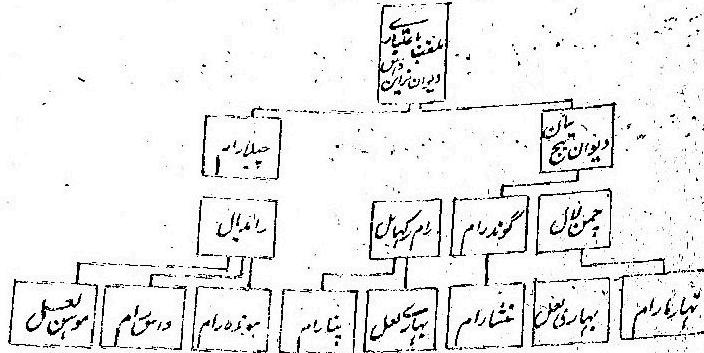 ملقب با عتباری
دیوان نراین داس
دیوان تیج بان
چیلارام
چمن لال
گوند رام
رام رکہامل
رائدیال
تہارمارام
بہاری لعل
منشارام
بہاری لعل
پنارام
ہونده رام
داس رام
موہن لعل